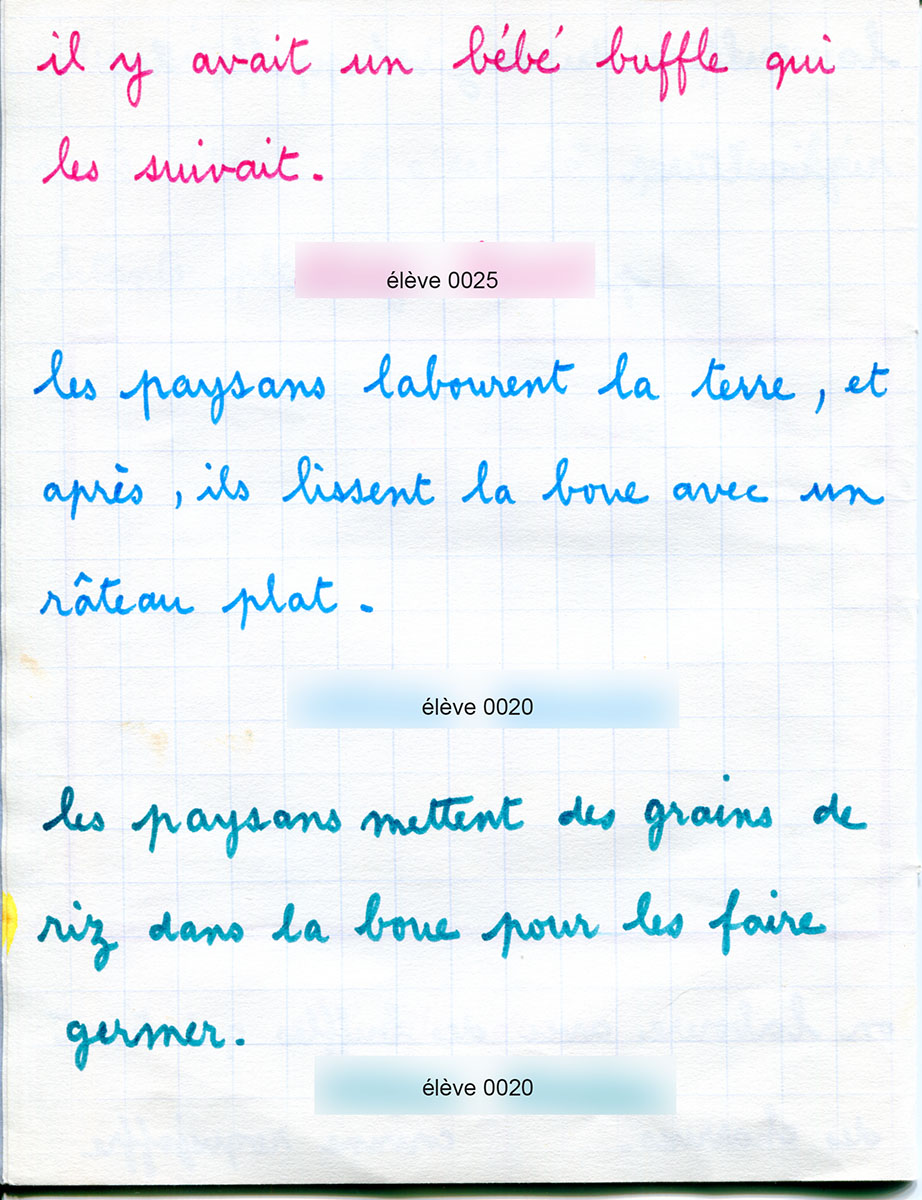 il y avait un bébé buffle qui
les suivait.
élève 0025
les paysans labourent la terre, et
après, ils lissent la boue avec un
râteau plat.
élève 0020
les paysans mettent des grains de
riz dans la boue pour les faire
germer.
élève 0020